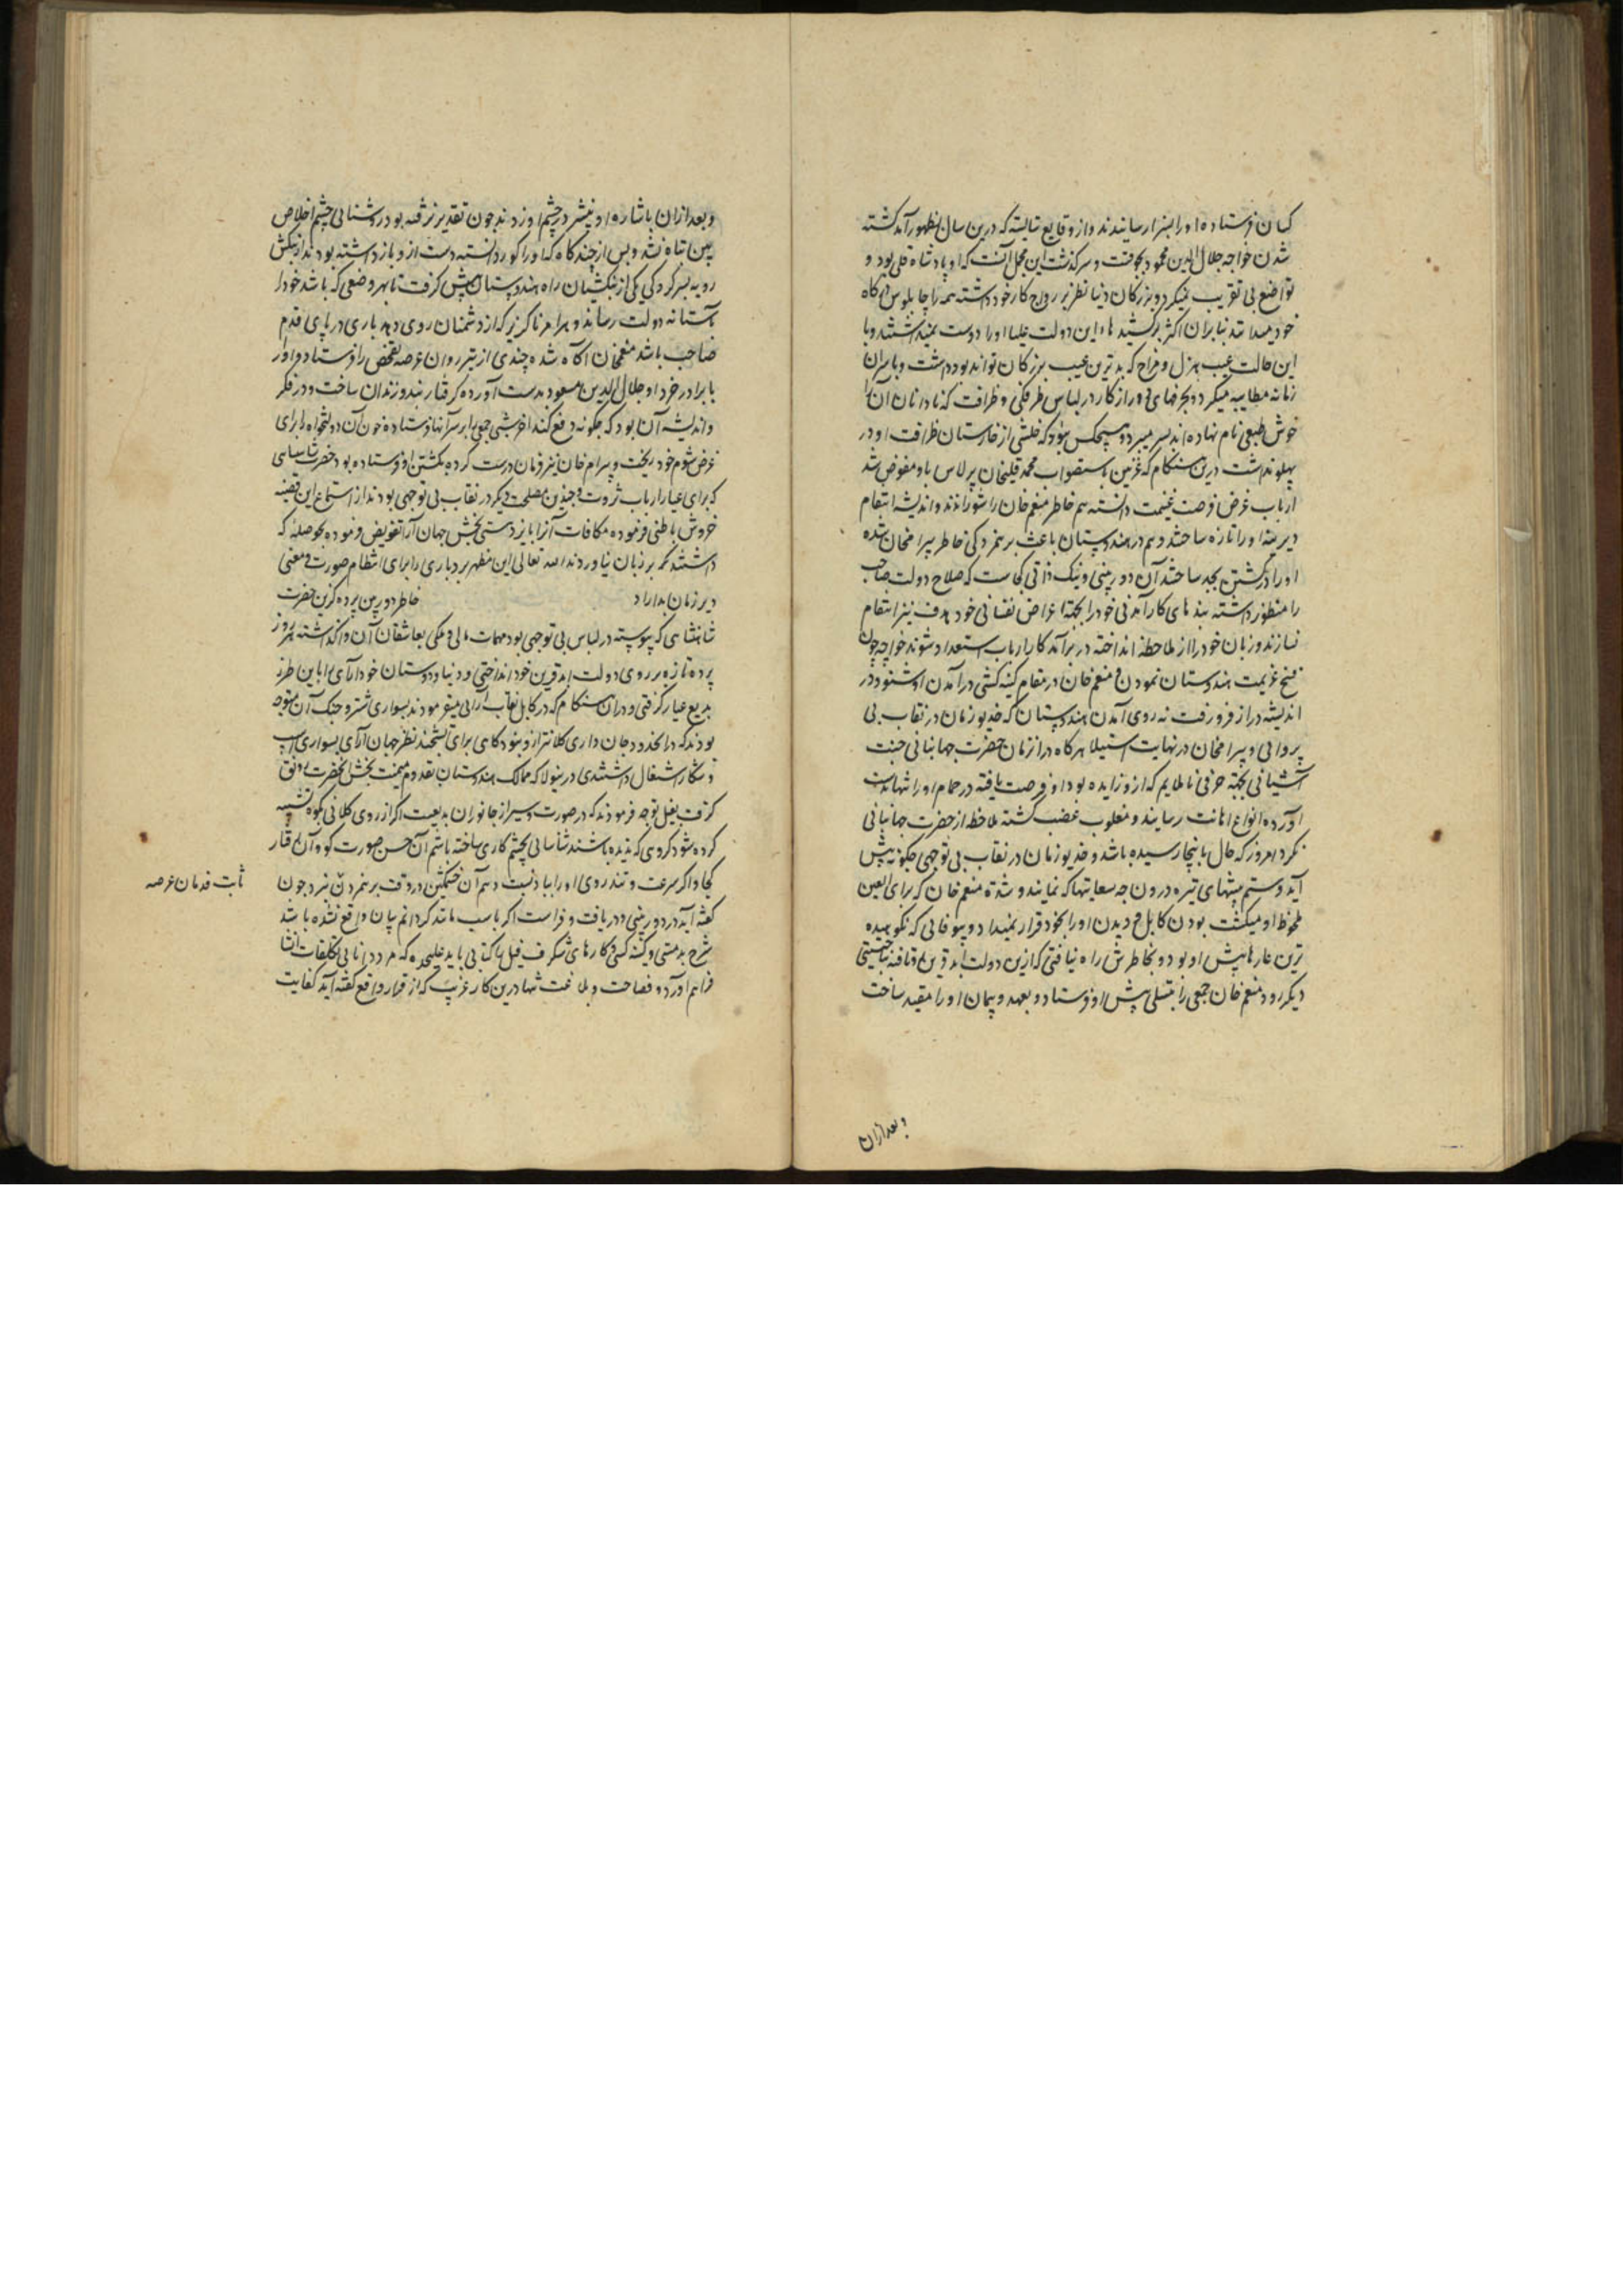 کسان فرستاده او را بسزا رسانیدند و از وقایع شایسته که درین سال بظهور آمد کشته
شدن خواجه جلال الدین محمود بجوقست و سرگذشت این مجمل آنست که او پادشاه قلی بود و
تواضع بی تقریب نمیکرد و بزرگان دنیا نظر بر رواج کار خود داشته همه را چاپلوس درگاه
خود میدانند بنابران اکثر برکشیدهای این دولت علیا او را دوست نمیداشتند و با
این حالت عیب هزل و مزاح که بدترین عیب بزرگان تواند بود داشت و با سران
زمانه مطایبه میکرد و بحرفهای دور از کار در لباس ظرفگی و ظرافت که نادانان آنرا
خوش طبعی نام نهاده اند بسر میبرد و هیچکس نبود که خلشی از خارستان ظرافت او در
پهلو نداشت درین هنگام که غزنین باستصواب محمد قلیخان برلاس باو مفوض شد
ارباب غرض فرصت غنیمت دانسته هم خاطر منعم خان را شورانیدند و اندیشه انتقام
دیرینه او را تازه ساختند و هم در هندوستان باعث برهمزدگی خاطر بیرامخان شده
او را در کشتن بجد ساختند آن دوربینی و نیک ذاتی کجاست که صلاح دولت صاحب
را منظور داشته بندهای کارآمدنی خود را بجهة اغراض نفسانی خود هدف تیر انتقام
نسازند و زبان خود را از ملاحظه انداخته در برآمد کار ارباب استعداد شوند خواجه چون
فسخ عزیمت هندوستان نمودن و منعم خان در مقام کینه کشی درآمدن او شنود در
اندیشه دراز فرو رفت نه روی آمدن هندوستان که خدیو زمان در نقاب بی
پروائی و بیرامخان در نهایت استیلا هرگاه در ازمان حضرت جهانبانی جنت
آشیانی بجهة حرفی ناملایم که ازو زایده بود او فرصت یافته در حمام او را تنها بدست
آورده انواع اهانت رسانید و مغلوب غضب گشته ملاحظه از حضرت جهانبانی
نکرد امروز که حال باینجا رسیده باشد و خدیو زمان در نقاب بی توجهی چگونه پیش
آید و ستم پیشهای تیره درون چه سعایتها که نمایند و نه منعم خان که برای العین
ملحوظ او میگشت بودن کابل و دیدن او را بخود قرار نمیداد و بیوفائی که نکوهیده
ترین عارها پیش او بود و بخاطرش راه نیافتی که ازین دولت ابد قرین تافته بجهتی
دیگر رود منعم خان جمعی را بتسلی پیش او فرستاد و بعهد و پیمان او را مقید ساخت
و بعد ازان
و بعد ازان باشاره او نیشتر در چشم او زدند چون تقدیر نرفته بود روشنائی چشم اخلاص
بین تباه نشد و پس از چندگاه که او را کور دانسته دست از و باز داشته بودند از بنگش
رویه بسرکردگی یکی از بنگشیان راه هندوستان پیش گرفت تا بهر وضعی که باشد خود را
بآستانه دولت رساند و هر امر ناگزیر که از دشمنان روی دهد باری در پای قدم
صاحب باشد منعمخان آگاه شده چندی از تیزروان عرصه تفحص را فرستاد و او را
با برادر خرد او جلال الدین مسعود بدست آورده گرفتار بند و زندان ساخت و در فکر
و اندیشه آن بود که چگونه دفع کند آخر شبی جمعی را بر سر آنها فرستاده خون آن دولتخواه را برای
غرض شوم خود ریخت و بیرام خان نیز فرمان درست کرده بکشتن او فرستاده بود حضرت شاهنشاهی
که برای عیار ارباب ثروت و چندین مصلحت دیگر در نقاب بی توجهی بودند از استماع این قضیه
خروش باطنی فرموده مکافات آنرا بایزدستی بخش جهان آرا تفویض فرموده بحوصلهٔ که
داشتند بر زبان نیاوردند الله تعالی این مظهر بردباری را برای انتظام صورت و معنی
دیر زمان بداراد خاطر دوربین پرده گزین حضرت
شاهنشاهی که پیوسته در لباس بی توجهی بود مهمات مالی و ملکی بعاشقان آن واگذاشته هر روز
پرده تازه بر روی دولت ابد قرین خود انداختی و دنیا دوستان خودآرای را باین طرز
بدیع عیار گرفتی و دران هنگام که در کابل نقاب آرائی میفرمودند بسواری شتر و جنگ آن متوجه
بودند که دران حدود جان داری کلانتر ازو نبود گاهی برای تشحیذ نظر جهان آرای بسواری اسپ
و شکار اشتغال داشتندی درینولا که ممالک هندوستان بقدوم میمنت بخش آنحضرت رونق
گرفت بفیل توجه فرمودند که در صورت و سیر از جانوران بدیعست اگر از روی کلانی بکوه تشبیه
کرده شود گروهی که ندیده باشند شناسائی بچشم کاری ساخته باشم آن حسن صورت کو و آن وقار
کجا و اگر سرعت و تندروی او را بباد نسبت دهم آن خشمگین در وقت برهمزدن نبرد چون
ثابت قدمان عرصه
گفته آید در دوربینی و دریافت و فراست اگر باسپ مانند گردانم بیان واقع نشده باشد
شرح بدمستی و کینه کشی و کارهای شگرف فیل را کتابی باید علیحده که مرد دانائی تکلفات انشا
فراهم آورد و فصاحت و بلاغت تنها درین کار غریب که از قرار واقع گفته آید کفایت